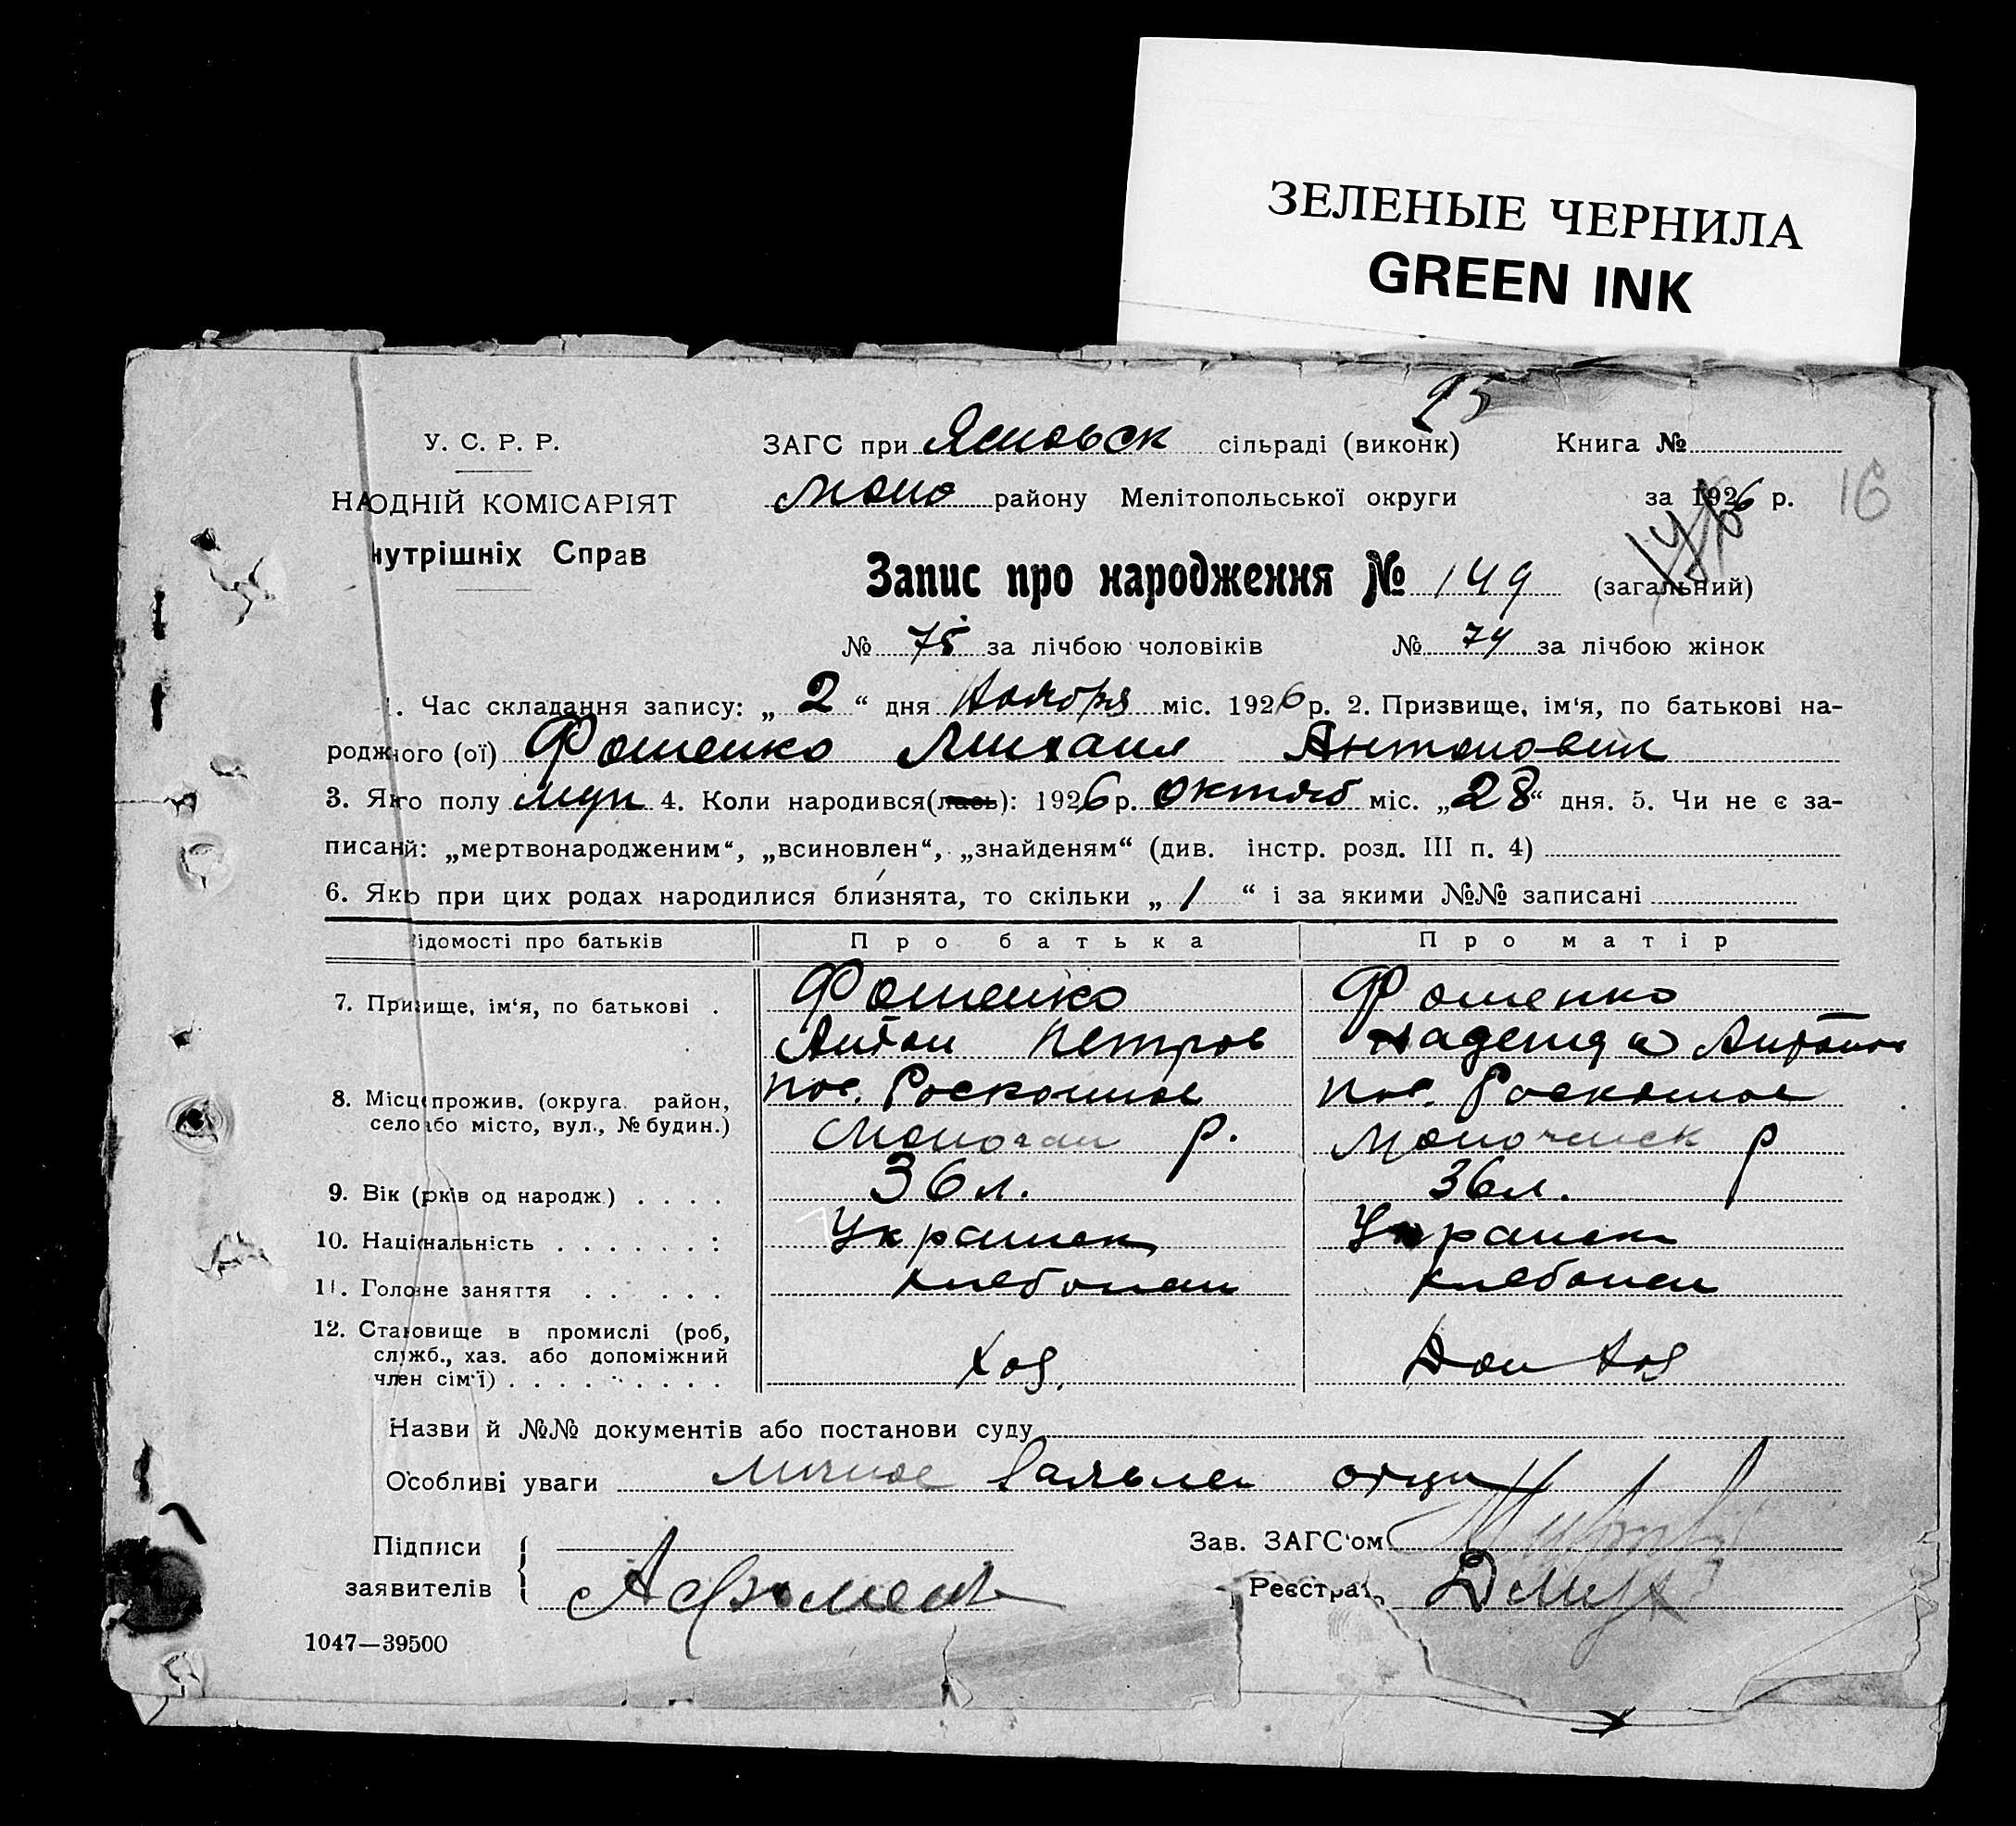 ЗЕЛЕНЫЕ ЧЕРНИЛА
GREEN INK
95
У. С. Р. Р. ЗАГС при сільраді (виконк) Книга №
НАОДНІЙ КОМІСАРІЯТ району Мелітопольської округи за 1926 р. 16
нутрішніх Справ
Запис про народження № 149 (загальний)
№ 75 за лічбою чоловіків № 74 за лічбою жінок
1. Час складання запису: „ 2 “ дня Ноября міс. 1926 р. 2. Призвище, ім‘я, по батькові на-
родж ого (ої) Фоменко Михаил Антонович
3. Яго полу муж 4. Коли народився(лась): 1926 р. октяб міс. „28“ дня. 5. Чи не є за-
писаний: „мертвонародженим“, „всиновлен“, „знайденям“ (див. інстр. розд. III п. 4)
6. Яко при цих родах народилися близнята, то скільки „ 1 “ і за якими №№ записані
ідомості про батьків Про батька Про матір
7. Призище, ім‘я, по батькові . Фоменко Фоменко
Антон Петров Надежда Антонов
8. Місце прожив. (округа район, пос. Роскошное пос. Роскошное
село або місто, вул., № будин.) р. р
9. Вік (рків од народж) . . . . 36 л. 36 л.
10. Національність . . . . . . : Украинец Украинк
11. Головне заняття . . . . . . хлебопаш хлебопаш
12. Становище в промислі (роб,
служб., хаз. або допоміжний Хоз. Дом Хоз
член сім‘ї) . . . . . . . . .
Назви й №№ документів або постанови суду
Особливі уваги личное заявлен отца
Підписи Зав. ЗАГС‘ом
заявителів А Фоменк Реєстрат
1047—39500